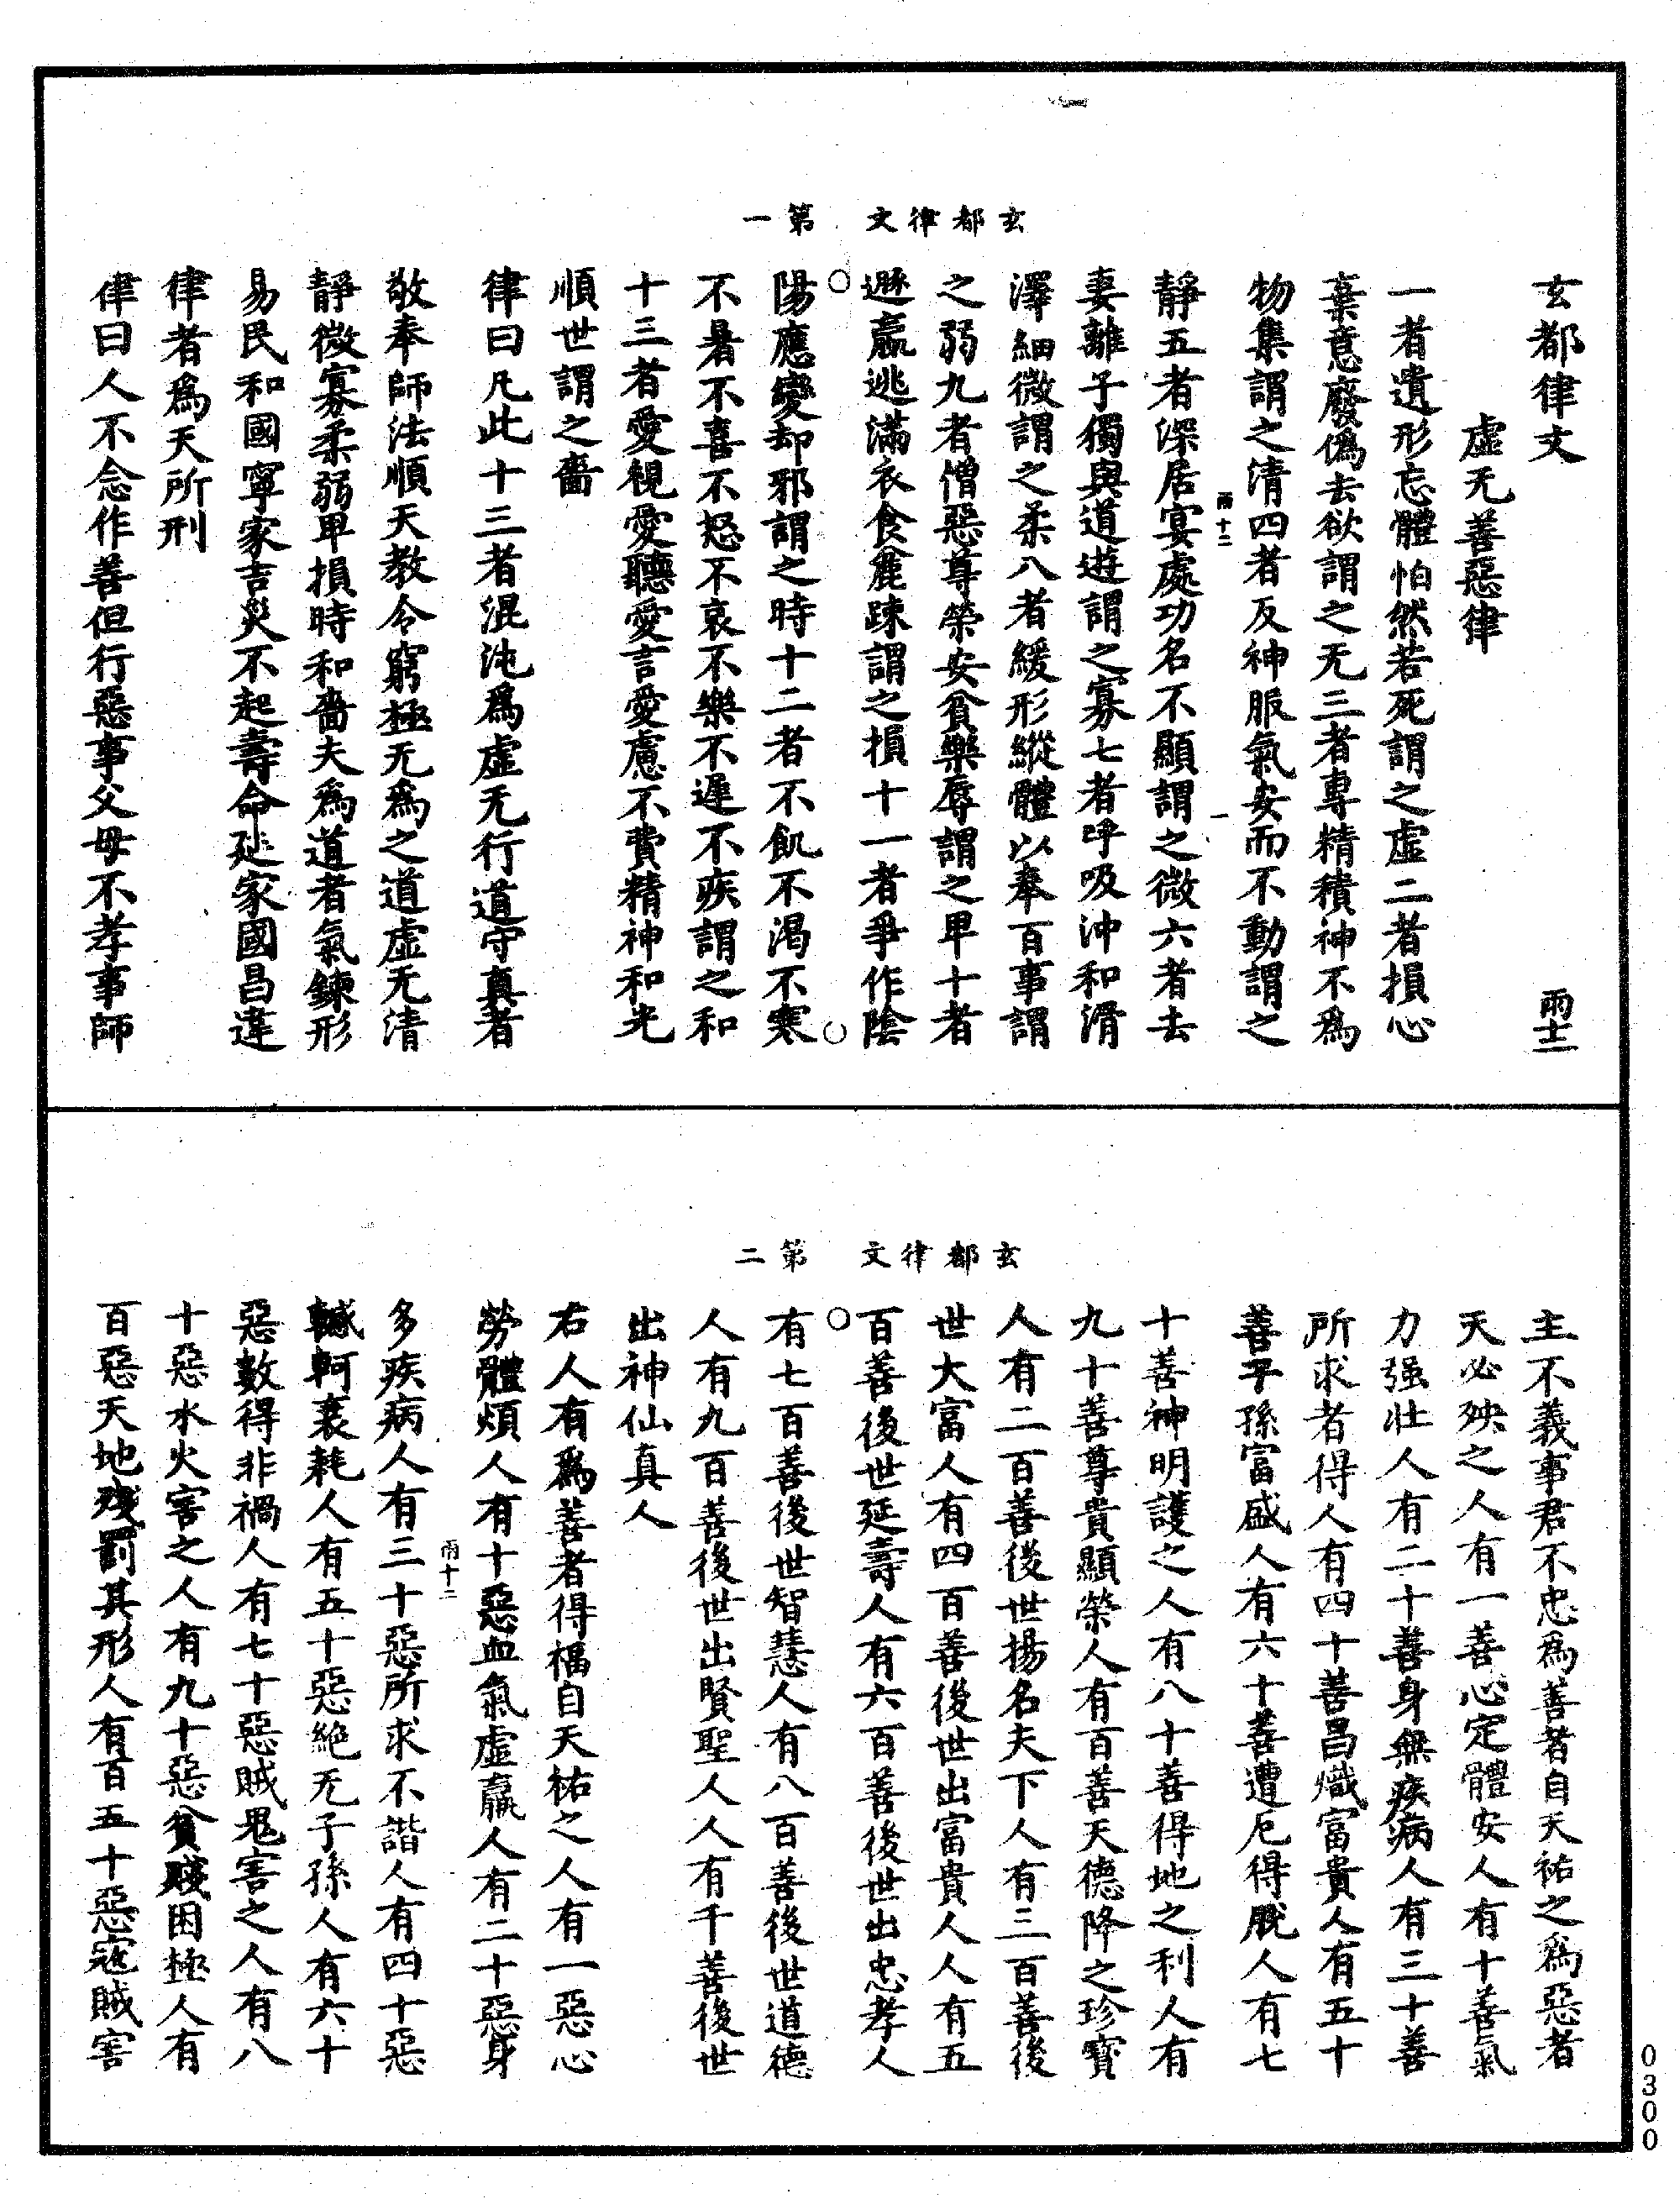 玄都律文　第一
玄都律文　雨十二
虛无善惡律
一者遺形忘體怕然若死謂之虛二者損心
棄意廢偽去欲謂之无三者專精積神不為
物集謂之清四者反神服氣安而不動謂之
雨十二　一
靜五者深居宴處功名不顯謂之微六者去
妻離子獨與道遊謂之寡七者呼吸沖和滑
澤細微謂之柔八者緩形縱體以奉百事謂
之弱九者憎惡尊榮安貧樂辱謂之卑十者
遯羸逃滿衣食麁踈謂之損十一者爭作陰
陽應變却邪謂之時十二者不飢不渴不寒
不暑不喜不怒不哀不樂不遲不疾謂之和
十三者愛視愛聽愛言愛慮不費精神和光
順世謂之嗇
律曰凡此十三者混沌為虛无行道守真者
敬奉師法順天教令窮極无為之道虛无清
靜微寡柔弱卑損時和嗇夫為道者氣鍊形
易民和國寧家吉災不起壽命延家國昌違
律者為天所刑
律曰人不念作善但行惡事父母不孝事師
玄都律文　第二
主不義事君不忠為善者自天祐之為惡者
天必殃之人有一善心定體安人有十善氣
力强壯人有二十善身無疾病人有三十善
所求者得人有四十善昌熾富貴人有五十
善子孫富盛人有六十善遭厄得脫人有七
十善神明護之人有八十善得地之利人有
九十善尊貴顯榮人有百善天德降之珍寶
人有二百善後世揚名夫下人有三百善後
世大富人有四百善後世出富貴人人有五
百善後世延壽人有六百善後世出忠孝人
有七百善後世智慧人有八百善後世道德
人有九百善後世出賢聖人人有千善後世
出神仙真人
右人有為善者得福自天祐之人有一惡心
勞體煩人有十惡血氣虛羸人有二十惡身
多疾病人有三十惡所求不諧人有四十惡
雨十二
轗軻衰耗人有五十惡絕无子孫人有六十
惡數得非禍人有七十惡賊鬼害之人有八
十惡水火害之人有九十惡貧賤困極人有
百惡天地殘罰其形人有百五十惡寇賊害
0300